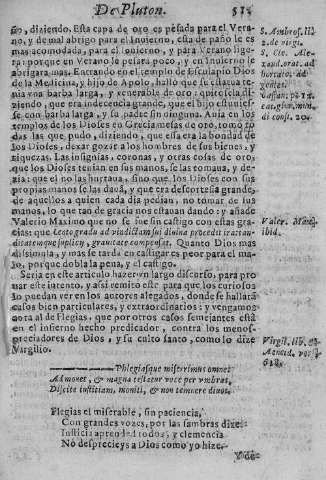 De Pluton. 51
ño, diziendo. Esta capa de oro es pesada para el Vera-
no, y de mal abrigo para el Inuierno, esta de paño le es
mas acomodada, para el inuierno, y para Verano lige-
ra: porque en Verano le pesara poco, y en Inuierno le
abrigara mas. Entrando en el templo de Esculapio Dios
de la Medicina, y hijo de Apolo, halló que su estatua te-
nia vna barba larga, y venerable de oro: quitosela di-
ziendo, que era indecencia grande, que el hijo estuuies-
se con barba larga, y su padre sin ninguna. Auia en los
templos de los Dioses en Grecia mesas de oro, tomó to
das las que pudo, diziendo, que essa era la bondad de
los Dioses, dexar gozir a los hombres de sus bienes, y
riquezas. Las insignias, coronas, y otras cosas de oro,
que los Dioses tenian en sus manos, se las tomaua, y de-
zia: que el no las hurtaua, sino que los Dioses con sus
propias manos se las dauã, y que era descortesia grande,
de aquellos a quien cada dia pedian, no tomar de sus
manos, lo que tan de gracia nos estauan dando: y añade
Valerio Maximo que no se fue sin castigo con estas gra-
cias: que Lento gradu ad vindictam sui diuina procedit ira: tar-
ditatemque suplicij, grauitate compensat. Quanto Dios mas
dissimula, y mas se tarda en castigar es peor para el ma-
lo, porque dobla la pena, y el castigo.
Seria en este articulo hazer vn largo discurso, para pro
uar este intento, y assi remito este para que los curiosos
lo puedan ver en los autores alegados, donde se hallarã
casos bien particulares, y extraordinarios: y vengamos
aora al de Flegias, que por otros casos semejantes está
en el infierno hecho predicador, contra los menos-
preciadores de Dios, y su culto santo, como lo dize
Virgilio.
Phlegiasque miserrimus omnes
Admonet, & magna testatur voce per vmbras,
Discite iustitiam, moniti, & non temnere diuos.
Flegias el miserable, sin paciencia,
Con grandes vozes, por las sombras dize:
Iusticia aprended todos, y clemencia
No desprecieys a Dios como yo hize.
S. Ambros. li.
de virgi.
S. Cle. Ale-
xand. orat. ad
gentes.
Valer. Maxi.
ibid.
Virgil. lib. 6.